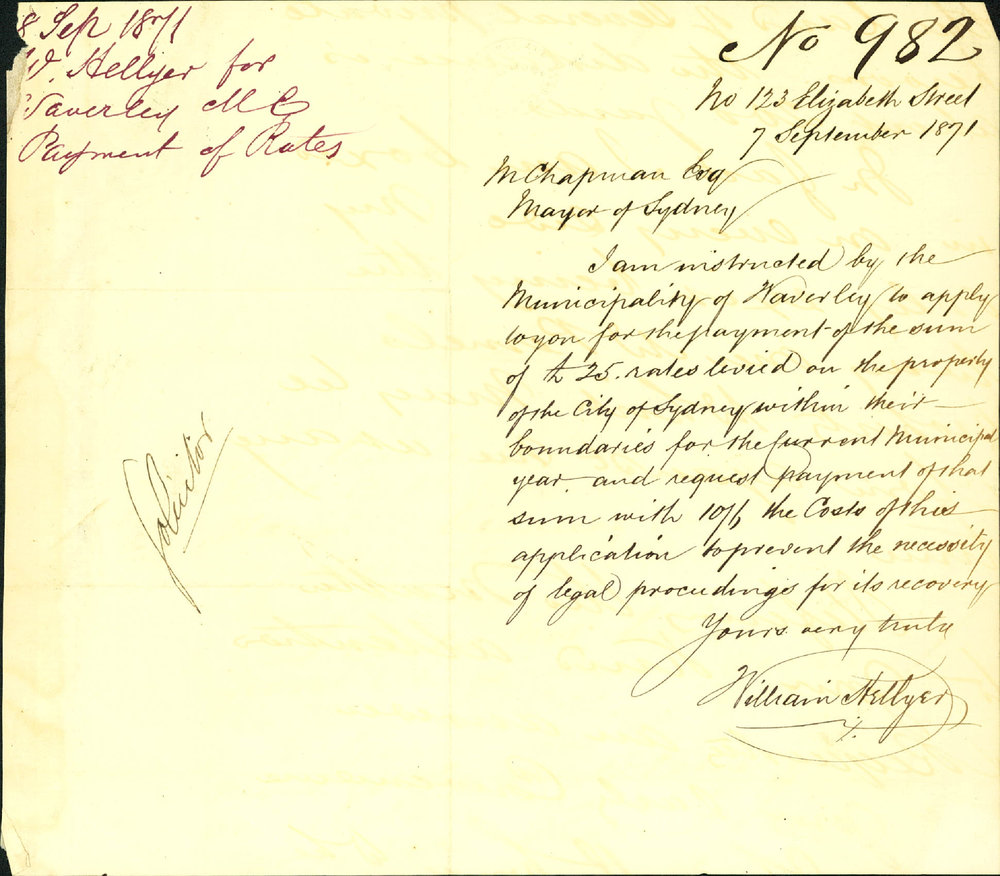 8 Sep 1871
W. Hellyer for
Waverley M C
Payment of Rates
No 982
No 123 Elizabeth Street
7 September 1871
M Chapman Esq
Mayor of Sydney
I am instructed by the
Municipality of Waverley to apply
to you for the payment of the sum
of £25. rates levied on the property
of the City of Sydney within their
boundaries for the current Municipal
year and request payment of that
sum with 10/6 the Costs of this
application to prevent the necessity
of legal proceedings for its recovery
Yours very truly
William Hellyer
Solicitor